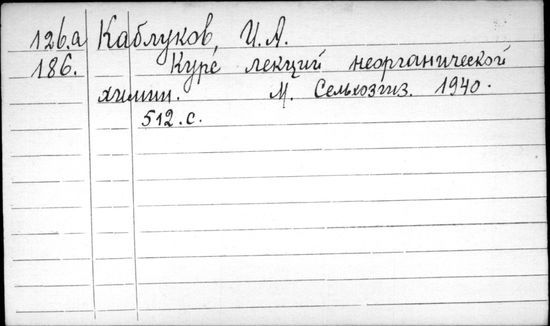 126.а Каблуков, И.А.
186. Курс лекций неорганической
химии. М. Сельхозгиз. 1940.
512.с.